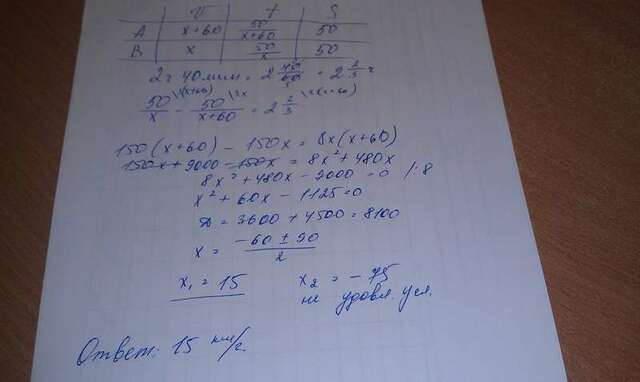 v t S
A x+60 50/x+60 50
B x 50/x 50
2ч 40мин = 2 40/60 = 2 2/3 ч
50/x \3(x+60) - 50/x+60 \3x = 2 2/3 \x(x+60)
150(x+60) - 150x = 8x(x+60)
150x + 9000 - 150x = 8x² + 480x
8x² + 480x - 9000 = 0 /:8
x² + 60x - 1125 = 0
D = 3600 + 4500 = 8100
x = -60 ± 90 / 2
x₁ = 15 x₂ = -75
не удовл. усл.
Ответ: 15 км/ч.